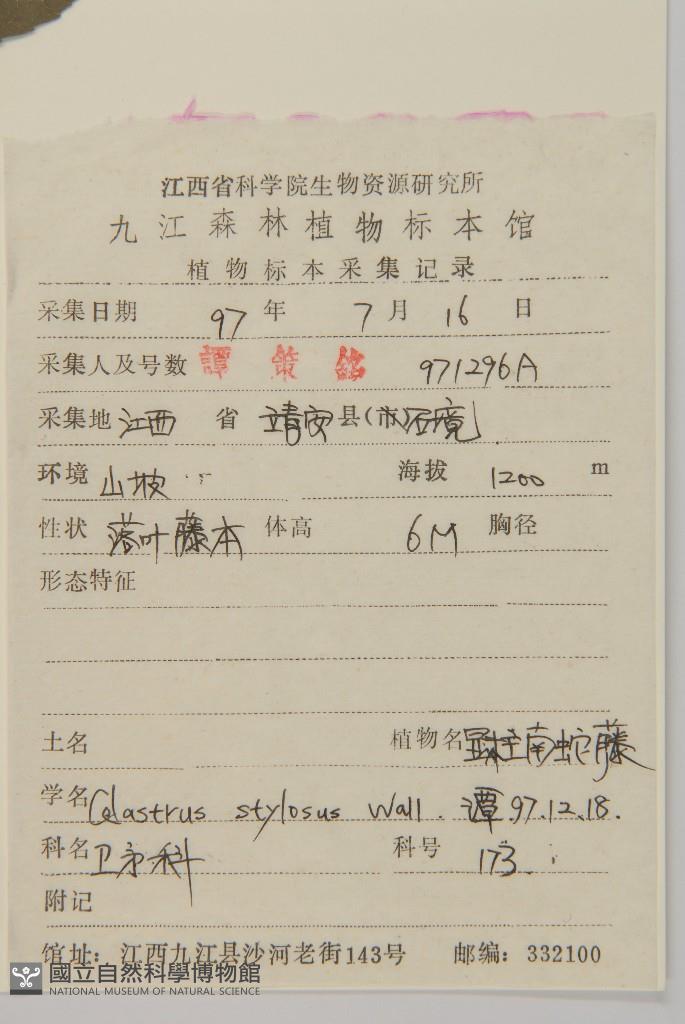 江西省科学院生物资源研究所
九江森林植物标本馆
植物标本采集记录
采集日期 97 年 7 月 16 日
采集人及号数 譚策銘 971296A
采集地 江西 省 靖安 县(市) 石境
环境 山坡 海拔 1200 m
性状 落叶藤本 体高 6M 胸径
形态特征
土名 植物名 显柱南蛇藤
学名 Celastrus stylosus Wall. 谭.97.12.18.
科名 卫矛科 科号 173.
附记
馆址：江西九江县沙河老街143号 邮编：332100
國立自然科學博物館
NATIONAL MUSEUM OF NATURAL SCIENCE